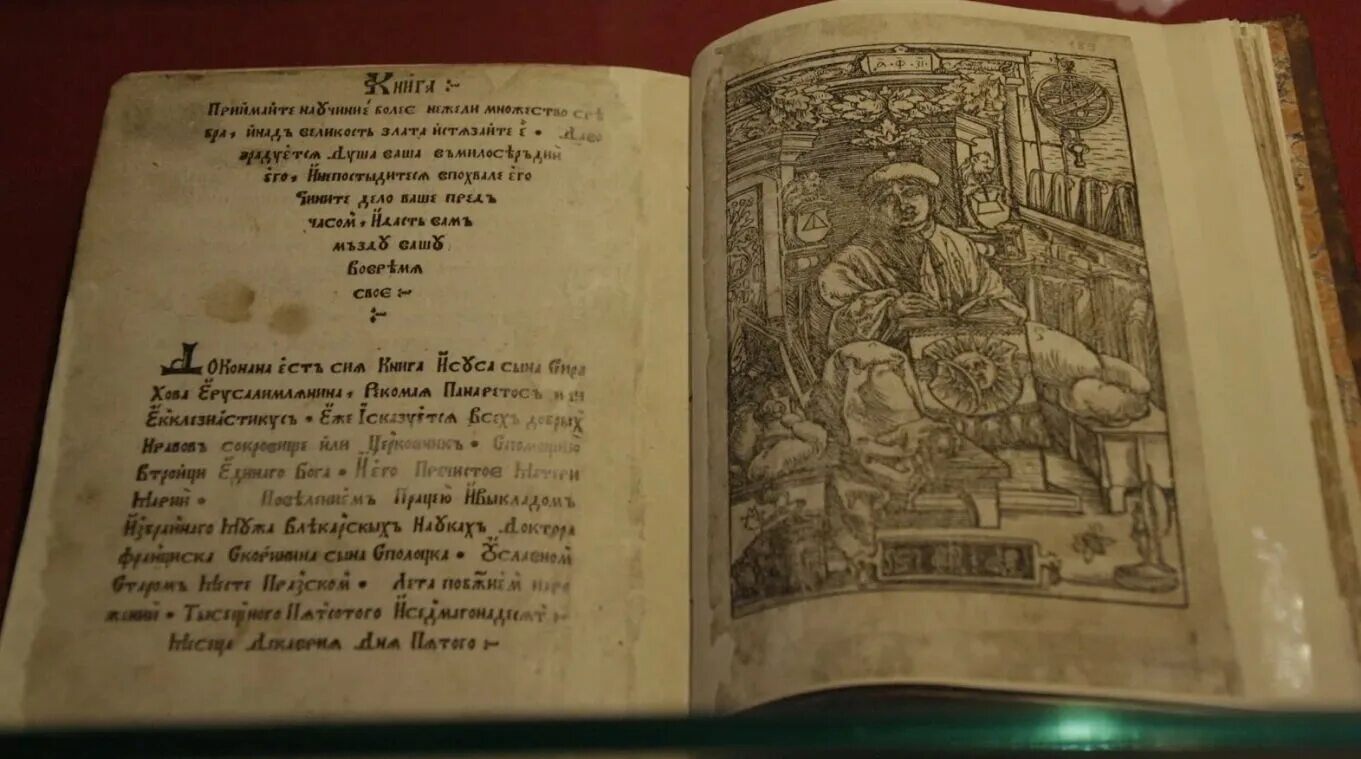 Книга :~
Приймайте научиние более нежели множество сре
бра, инадъ великость злата истѧзайте е • Даво
зрадуется Душа ваша въмилосѣръдии
его, Инепостыдитеся впохвале его
Чините дело ваше предъ
часом, Идасть вамъ
мъзду вашу
вовремѧ
свое :~
Доконана есть сиѧ Книга Исуса сына Сира
хова Ерусалимлѧнина, Рекомаѧ Панаретосъ
Екклезиастикусъ • Еже Ісказуетсѧ Всехъ добрых
Нравовъ сокровище или Церковникъ • Спомощию
Втройци Единаго Бога • Иего Пречистое Матери
Марии • Повѣлениемъ Працею Ивыкладомъ
Избраннаго Мужа Влѣкарскыхъ Науках Доктора
Франциска Скоринина сына Сполоцка • Уславном
Старомъ Месте Празском • Лета побжием наро
жении • Тысещного Пѧтсотого Иседмагонадесѧт
Месеца Декавриѧ Днѧ Пѧтого :~
А·Ф·П